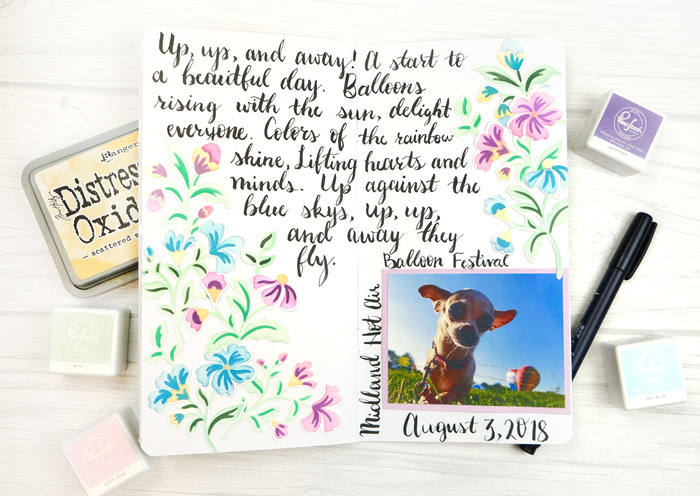 Up, up, and away! A start to
a beautiful day. Balloons
rising with the sun, delight
everyone. Colors of the rainbow
shine, Lifting hearts and
minds. Up against the
blue skys, up, up,
and away they
fly.
Balloon Festival
Midland Hot Air
August 3, 2018
Ranger
Distres
Oxid
scattered s
Pinkfresh
LAVENDER
MINT
SKY BLUE